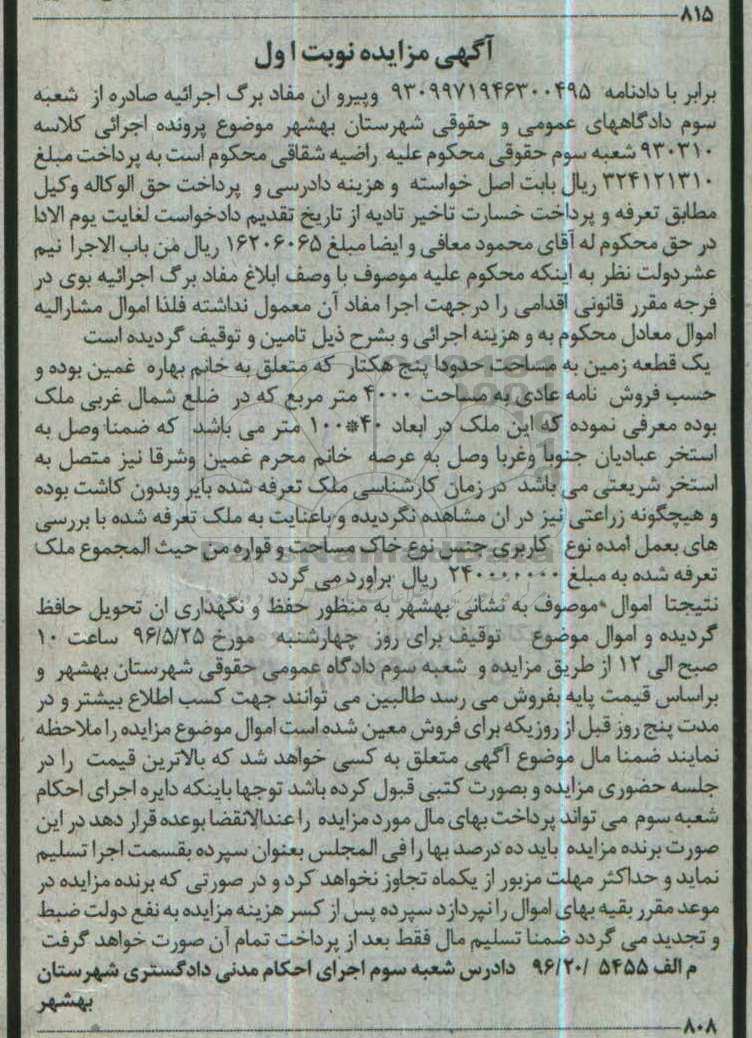 ۸۱۵
آگهی مزایده نوبت اول
برابر با دادنامه ۹۳۰۹۹۷۱۹۴۶۳۰۰۴۹۵ وپیرو ان مفاد برگ اجرائیه صادره از شعبه
سوم دادگاههای عمومی و حقوقی شهرستان بهشهر موضوع پرونده اجرائی کلاسه
۹۳۰۳۱۰ شعبه سوم حقوقی محکوم علیه راضیه شقاقی محکوم است به پرداخت مبلغ
۳۲۴۱۲۱۳۱۰ ریال بابت اصل خواسته و هزینه دادرسی و پرداخت حق الوکاله وکیل
مطابق تعرفه و پرداخت خسارت تاخیر تادیه از تاریخ تقدیم دادخواست لغایت یوم الادا
در حق محکوم له آقای محمود معافی و ایضا مبلغ ۱۶۲۰۶۰۶۵ ریال من باب الاجرا نیم
عشردولت نظر به اینکه محکوم علیه موصوف با وصف ابلاغ مفاد برگ اجرائیه بوی در
فرجه مقرر قانونی اقدامی را درجهت اجرا مفاد آن معمول نداشته فلذا اموال مشارالیه
اموال معادل محکوم به و هزینه اجرائی و بشرح ذیل تامین و توقیف گردیده است
یک قطعه زمین به مساحت حدودا پنج هکتار که متعلق به خانم بهاره غمین بوده و
حسب فروش نامه عادی به مساحت ۴۰۰۰ متر مربع که در ضلع شمال غربی ملک
بوده معرفی نموده که این ملک در ابعاد ۴۰*۱۰۰ متر می باشد که ضمنا وصل به
استخر عبادیان جنوبا وغربا وصل به عرصه خانم محرم غمین وشرقا نیز متصل به
استخر شریعتی می باشد در زمان کارشناسی ملک تعرفه شده بایر وبدون کاشت بوده
و هیچگونه زراعتی نیز در ان مشاهده نگردیده و باعنایت به ملک تعرفه شده با بررسی
های بعمل امده نوع کاربری جنس نوع خاک مساحت و قواره من حیث المجموع ملک
تعرفه شده به مبلغ ۲۴۰۰۰۰۰۰۰ ریال براورد می گردد
نتیجتا اموال موصوف به نشانی بهشهر به منظور حفظ و نگهداری ان تحویل حافظ
گردیده و اموال موضوع توقیف برای روز چهارشنبه مورخ ۹۶/۵/۲۵ ساعت ۱۰
صبح الی ۱۲ از طریق مزایده و شعبه سوم دادگاه عمومی حقوقی شهرستان بهشهر و
براساس قیمت پایه بفروش می رسد طالبین می توانند جهت کسب اطلاع بیشتر و در
مدت پنج روز قبل از روزیکه برای فروش معین شده است اموال موضوع مزایده را ملاحظه
نمایند ضمنا مال موضوع آگهی متعلق به کسی خواهد شد که بالاترین قیمت را در
جلسه حضوری مزایده و بصورت کتبی قبول کرده باشد توجها باینکه دایره اجرای احکام
شعبه سوم می تواند پرداخت بهای مال مورد مزایده را عندالانقضا بوعده قرار دهد در این
صورت برنده مزایده باید ده درصد بها را فی المجلس بعنوان سپرده بقسمت اجرا تسلیم
نماید و حداکثر مهلت مزبور از یکماه تجاوز نخواهد کرد و در صورتی که برنده مزایده در
موعد مقرر بقیه بهای اموال را نپردازد سپرده پس از کسر هزینه مزایده به نفع دولت ضبط
و تجدید می گردد ضمنا تسلیم مال فقط بعد از پرداخت تمام آن صورت خواهد گرفت
م الف ۵۴۵۵ /۹۶/۲۰ دادرس شعبه سوم اجرای احکام مدنی دادگستری شهرستان
بهشهر
۸۰۸